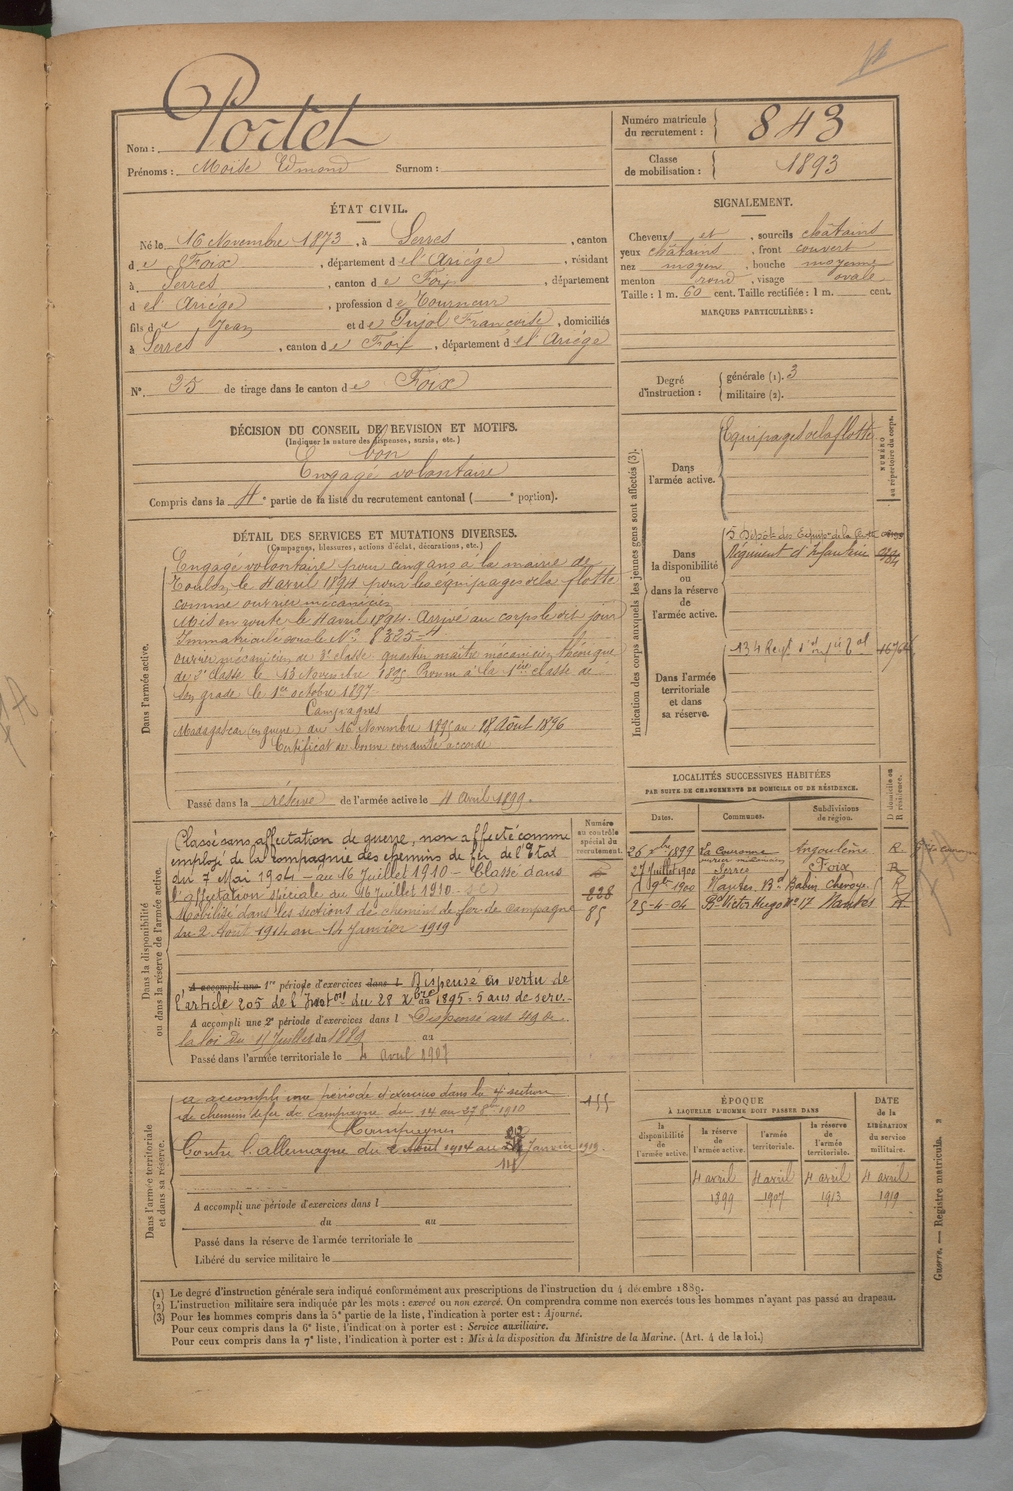 Portet
Nom :
Prénoms : Moïse Edmond Surnom :
Numéro matricule du recrutement : 843
Classe de mobilisation : 1893
ÉTAT CIVIL.
Né le 16 Novembre 1873, à Serres, canton
de Foix, département de l'Ariège, résidant
à Serres, canton de Foix, département
de l'Ariège, profession de Tourneur
fils de Jean et de Pujol Françoise, domiciliés
à Serres, canton de Foix, département de l'Ariège
N° 35 de tirage dans le canton de Foix
SIGNALEMENT.
Cheveux et, sourcils châtains
yeux châtains, front couvert
nez moyen, bouche moyenne
menton rond, visage ovale
Taille : 1 m. 60 cent. Taille rectifiée : 1 m. cent.
MARQUES PARTICULIÈRES :
Degré d'instruction : générale (1). 3
militaire (2).
DÉCISION DU CONSEIL DE REVISION ET MOTIFS.
(Indiquer la nature des dispenses, sursis, etc.)
bon
Engagé volontaire
Compris dans la 4e partie de la liste du recrutement cantonal ( e portion).
DÉTAIL DES SERVICES ET MUTATIONS DIVERSES.
(Campagnes, blessures, actions d'éclat, décorations, etc.)
Dans l'armée active.
Engagé volontaire pour cinq ans à la mairie de
Toulon, le 4 avril 1894 pour les équipages de la flotte
comme ouvrier mécanicien
Mis en route le 4 avril 1894. Arrivé au corps le dit jour
Immatriculé sous le N° 8325-4
ouvrier mécanicien de 3e classe quartier maître mécanicien théorique
de 2e classe le 13 Novembre 1895 Promu à la 1ère classe de
son grade le 1er octobre 1897
Campagnes
Madagascar (en guerre) du 16 Novembre 1895 au 18 Août 1896
Certificat de bonne conduite accordé
Passé dans la réserve de l'armée active le 4 Avril 1899.
Indication des corps auxquels les jeunes gens sont affectés (3).
NUMÉRO au répertoire du corps.
Dans l'armée active.
Equipages de la flotte
Dans la disponibilité ou dans la réserve de l'armée active.
5 Dépôt des Equip. de la flotte
Régiment d'Infanterie
Dans l'armée territoriale et dans sa réserve.
134 Regt d'
Dans la disponibilité ou dans la réserve de l'armée active.
Numéro au contrôle spécial du recrutement.
Classé sans affectation de guerre, non affecté comme
employé de la compagnie des chemins de fer de l'Etat
du 7 Mai 1904 - au 16 Juillet 1910 - Classé dans
l'affectation spéciale du 16 Juillet 1910 - SC)
Mobilisé dans les sections de chemins de fer de campagne
du 2 Août 1914 au 14 Janvier 1919
228
85
A accompli une 1re période d'exercices dans l Dispensé en vertu de
l'article 205 de l'Inston du 28 Xbre 1895 : 5 ans de serv.
A accompli une 2e période d'exercices dans l Dispensé art 49 de
la loi du 15 Juillet du 1889 au
Passé dans l'armée territoriale le 4 avril 1907
LOCALITÉS SUCCESSIVES HABITÉES
PAR SUITE DE CHANGEMENTS DE DOMICILE OU DE RÉSIDENCE.
Dates. Communes. Subdivisions de région. D domicile ou R résidence.
26 1899 La Couronne Angoulême R
27 Juillet 1900 Serres Foix R
1900 Nantes Bd Babin Chevaye R
25-4-04 Bd Victor Hugo N° 17 Nantes R
Dans l'armée territoriale et dans sa réserve.
a accompli une période d'exercices dans la 4e section
de chemin de fer de campagne du 14 au 27 1910
155
Campagnes
Contre l'allemagne du 2 Août 1914 au Janvier 1919.
A accompli une période d'exercices dans l
du au
Passé dans la réserve de l'armée territoriale le
Libéré du service militaire le
ÉPOQUE
À LAQUELLE L'HOMME DOIT PASSER DANS
DATE de la LIBÉRATION du service militaire.
la disponibilité de l'armée active. la réserve de l'armée active. l'armée territoriale. la réserve de l'armée territoriale.
4 avril 4 avril 4 avril 4 avril
1899 1907 1913 1919
Guerre. — Registre matricule. 2
(1) Le degré d'instruction générale sera indiqué conformément aux prescriptions de l'instruction du 4 décembre 1889.
(2) L'instruction militaire sera indiquée par les mots : exercé ou non exercé. On comprendra comme non exercés tous les hommes n'ayant pas passé au drapeau.
(3) Pour les hommes compris dans la 5e partie de la liste, l'indication à porter est : Ajourné.
Pour ceux compris dans la 6e liste, l'indication à porter est : Service auxiliaire.
Pour ceux compris dans la 7e liste, l'indication à porter est : Mis à la disposition du Ministre de la Marine. (Art. 4 de la loi.)